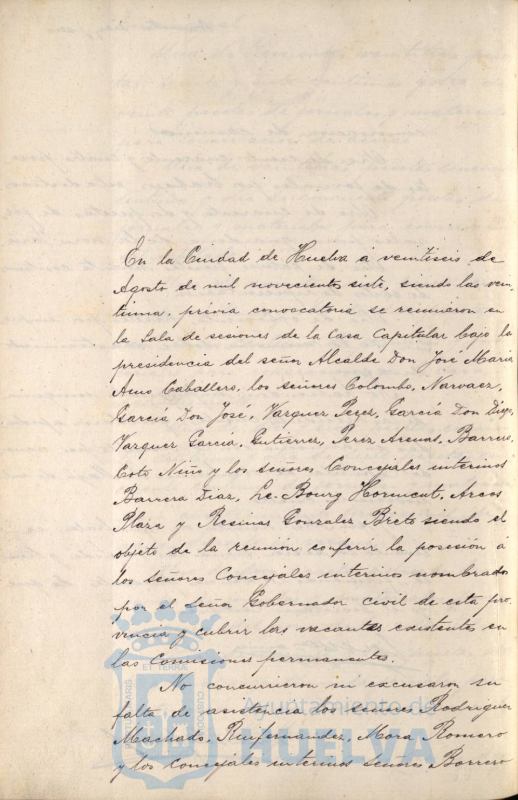 En la Ciudad de Huelva á veintiseis de
Agosto de mil novecientos siete, siendo las vein-
tiuna, previa convocatoria se reunieron en
la Sala de sesiones de la Casa Capitular bajo la
presidencia del señor Alcalde Don José Maria
Amo Caballero, los señores Colombo, Narvaez,
Garcia Don José, Vazquez Perez, Garcia Don Diego,
Vazquez Garcia, Gutierrez, Perez Arenas, Barrero,
Coto Niño y los señores Concejales interinos
Barrera Diaz, Le-Bourg Hormcut, Arcos
Plaza y Resinas Gonzalez Brieto siendo el
objeto de la reunión conferir la posesión á
los señores Concejales interinos nombrados
por el señor Gobernador civil de esta pro-
vincia y cubrir las vacantes existentes en
las Comisiones permanentes.
No concurrieron ni excusaron su
falta de asistencia los señores Rodriguez
Machado, Ruifernandez, Mora Romero
y los concejales interinos señores Borrero
ET TERRÆ
Ayuntamiento de
HUELVA